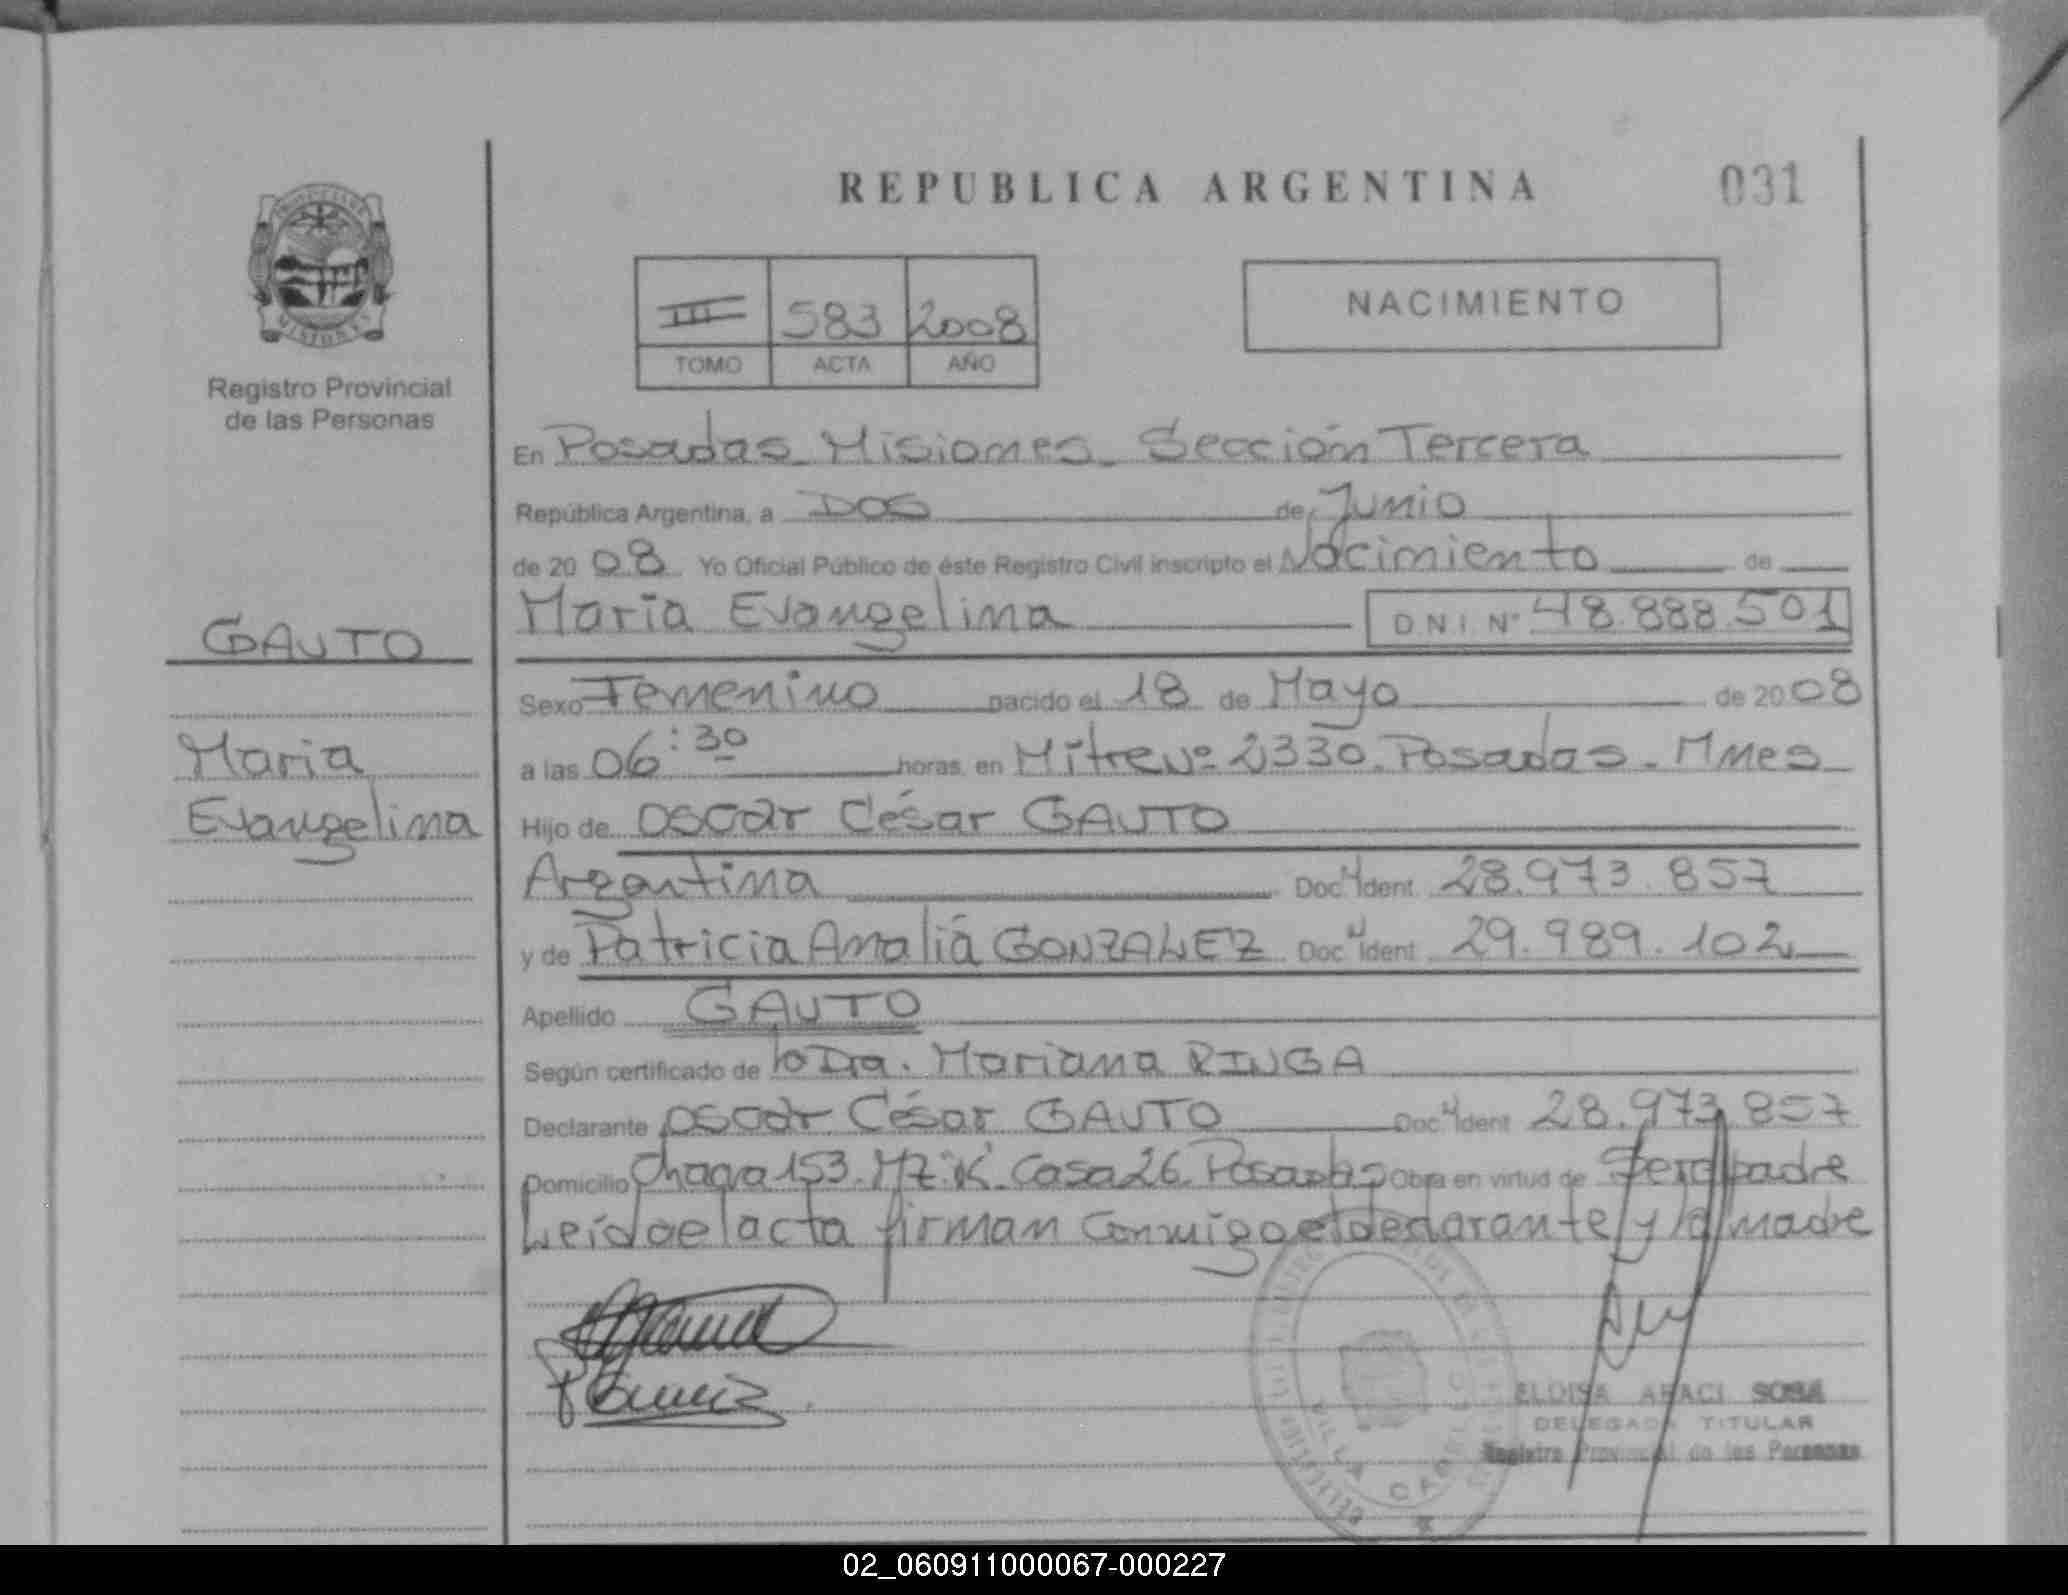 REPUBLICA ARGENTINA
031
III 583 2008
TOMO ACTA AÑO
NACIMIENTO
MISIONES
Registro Provincial
de las Personas
En Posadas Misiones. Sección Tercera
República Argentina, a DOS de Junio
de 20 08 Yo Oficial Público de éste Registro Civil inscripto el Nacimiento de
Maria Evangelina D.N.I. Nº 48.888.501
GAUTO
Sexo Femenino nacido el 18 de Mayo de 20 08
Maria
a las 06:30 horas, en Mitre Nº 2330. Posadas. Mnes
Evangelina
Hijo de Oscar César GAUTO
Argentina Doc. Ident. 28.973.857
y de Patricia Analía GONZALEZ Doc. Ident. 29.989.102
Apellido GAUTO
Según certificado de la Dra. Mariana RINGA
Declarante Oscar César GAUTO Doc. Ident. 28.973.857
Domicilio Chacra 153. MZ. K. Casa 26. Posadas Obra en virtud de Ser el padre
Leída el acta firman conmigo el declarante y la madre
VILLA CABELLO
ELOISA ARACI SOSA
DELEGADA TITULAR
Registro Provincial de las Personas
02_060911000067-000227